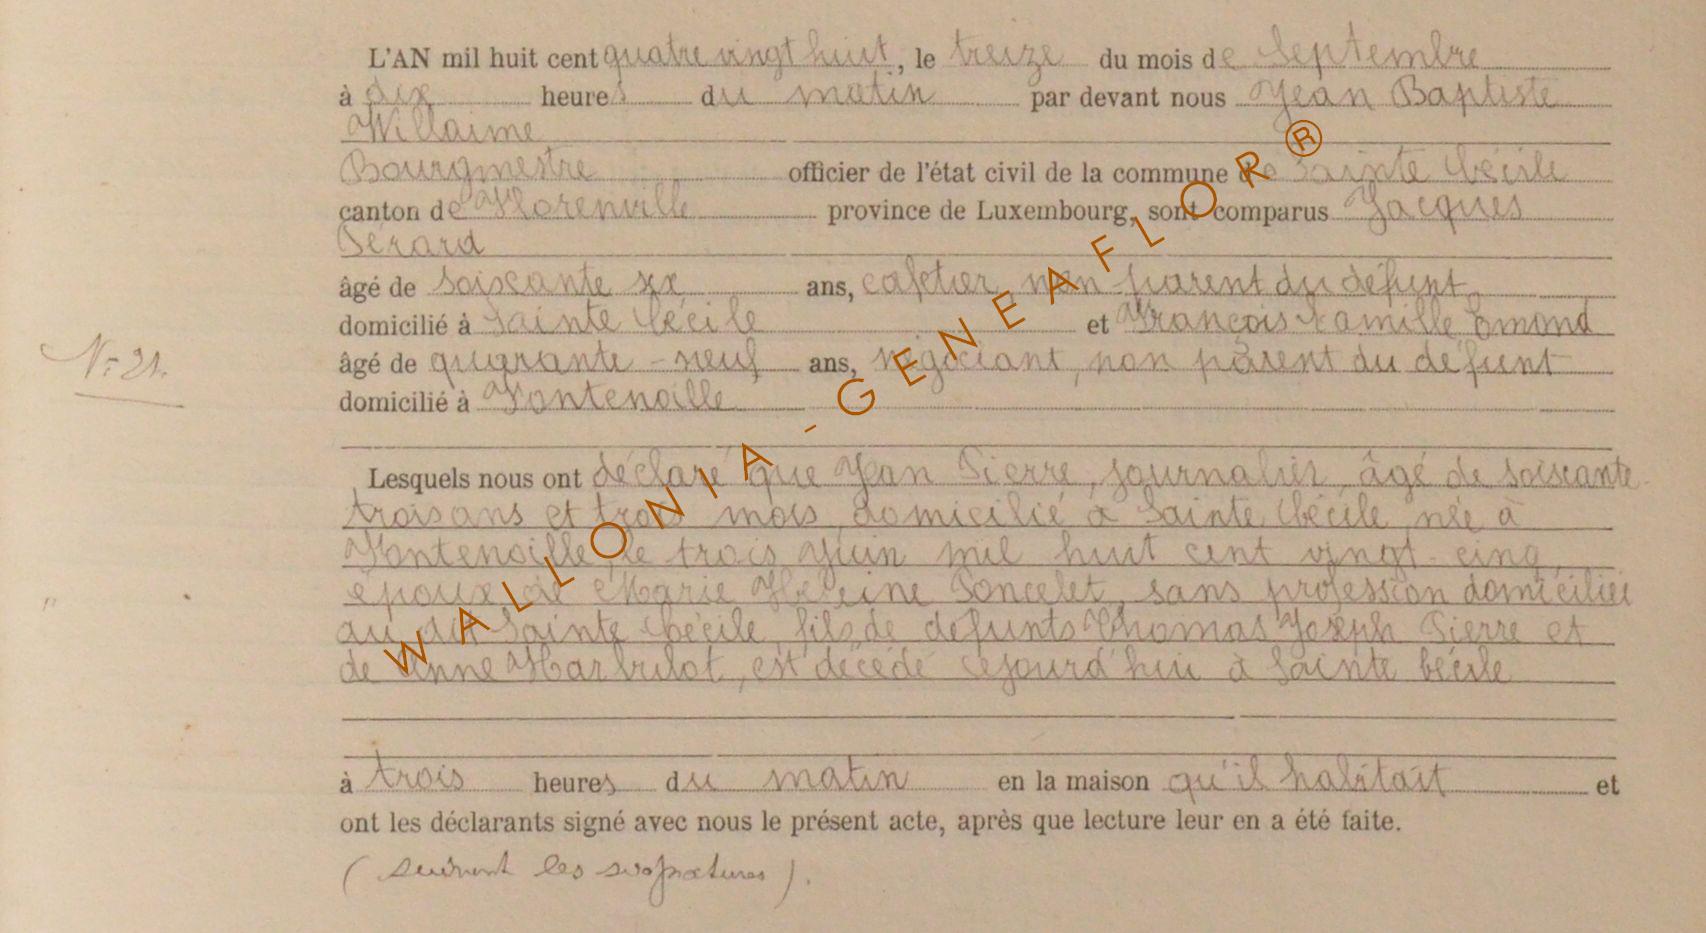 L'AN mil huit cent quatre vingt huit, le treize du mois de Septembre
à dix heures du matin par devant nous Jean Baptiste
Willaime
Bourgmestre officier de l'état civil de la commune de Sainte Cécile
canton de Florenville province de Luxembourg, sont comparus Jacques
Pérard
âgé de soixante six ans, cafetier, non parent du défunt
domicilié à Sainte Cécile et François Camille Emond
N° 21.
âgé de quarante-neuf ans, négociant, non parent du défunt
domicilié à Fontenoille
Lesquels nous ont déclaré que Jean Pierre, journalier, âgé de soixante
trois ans et trois mois, domicilié à Sainte Cécile, née à
Fontenoille, le trois juin mil huit cent vingt-cinq,
époux de Marie Heleine Poncelet, sans profession domiciliée
au dit Sainte Cécile, fils de défunts Thomas Joseph Pierre et
de Anne Harbulot, est décédé cejourd'hui à Sainte Cécile
à trois heures du matin en la maison qu'il habitait et
ont les déclarants signé avec nous le présent acte, après que lecture leur en a été faite.
(suivent les signatures).
WALLONIA-GENEAFLOR®